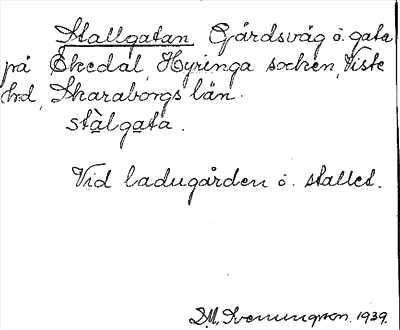 Stallgatan Gårdsväg o. gata
på Ekedal, Hyringa socken, Viste
hd, Skaraborgs län.
stàlgata.
Vid ladugården o. stallet.
D.M. Svenningson. 1939.